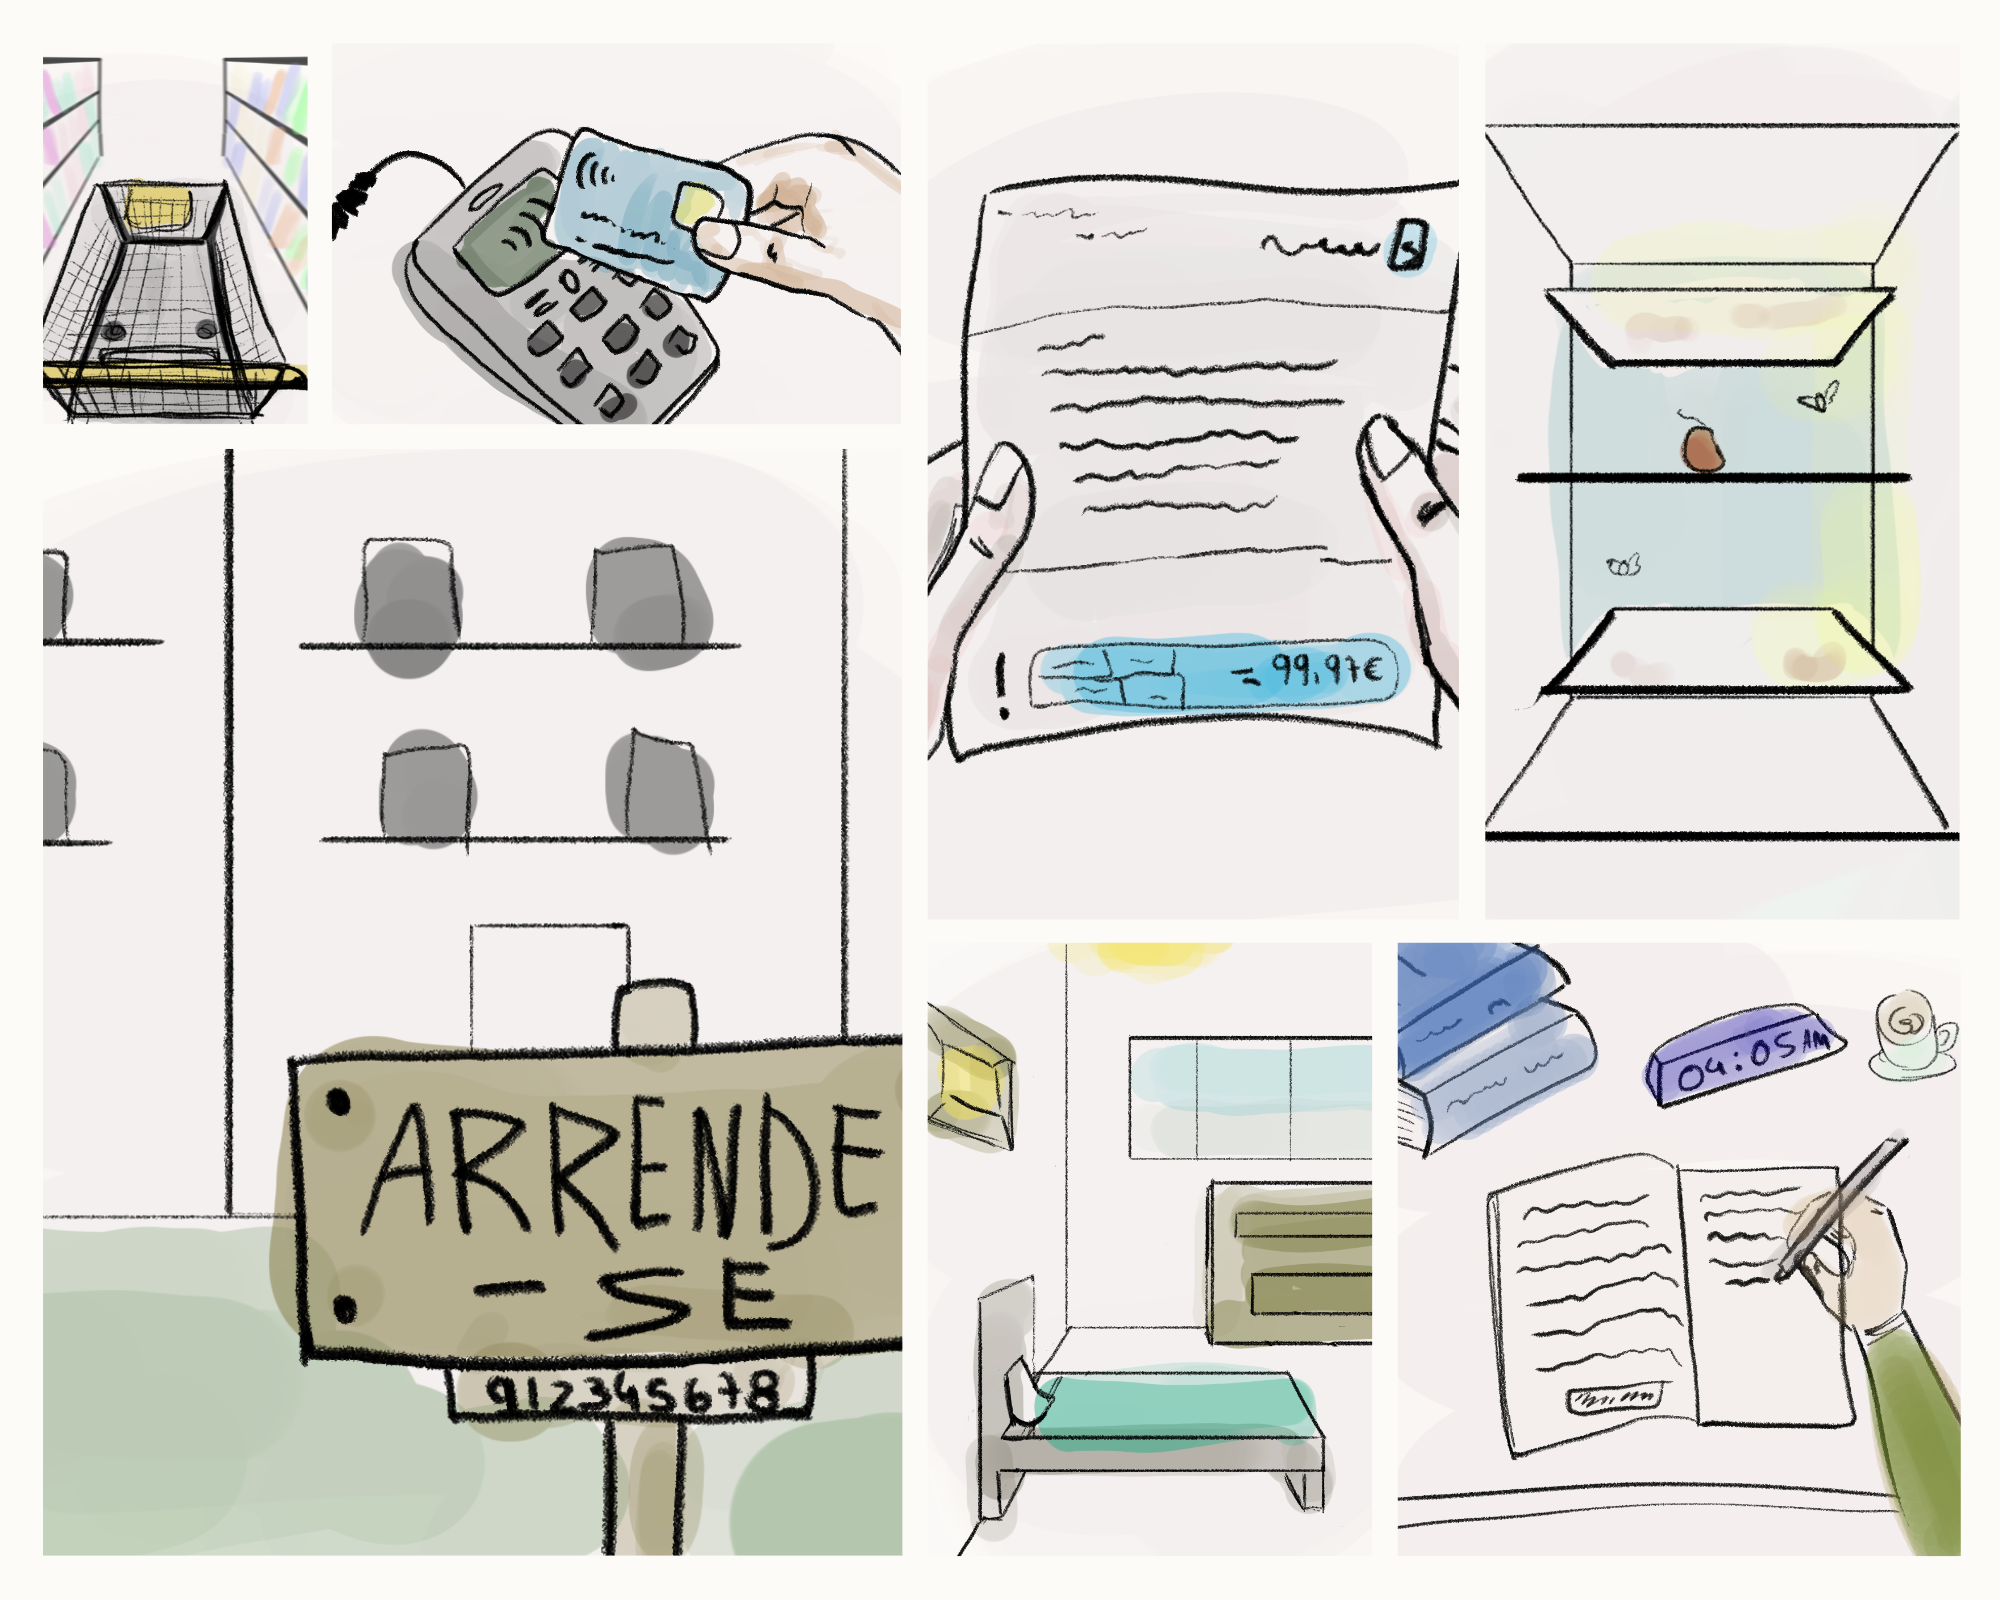 = 99,97€
ARRENDE
- SE
912345678
04:05 AM